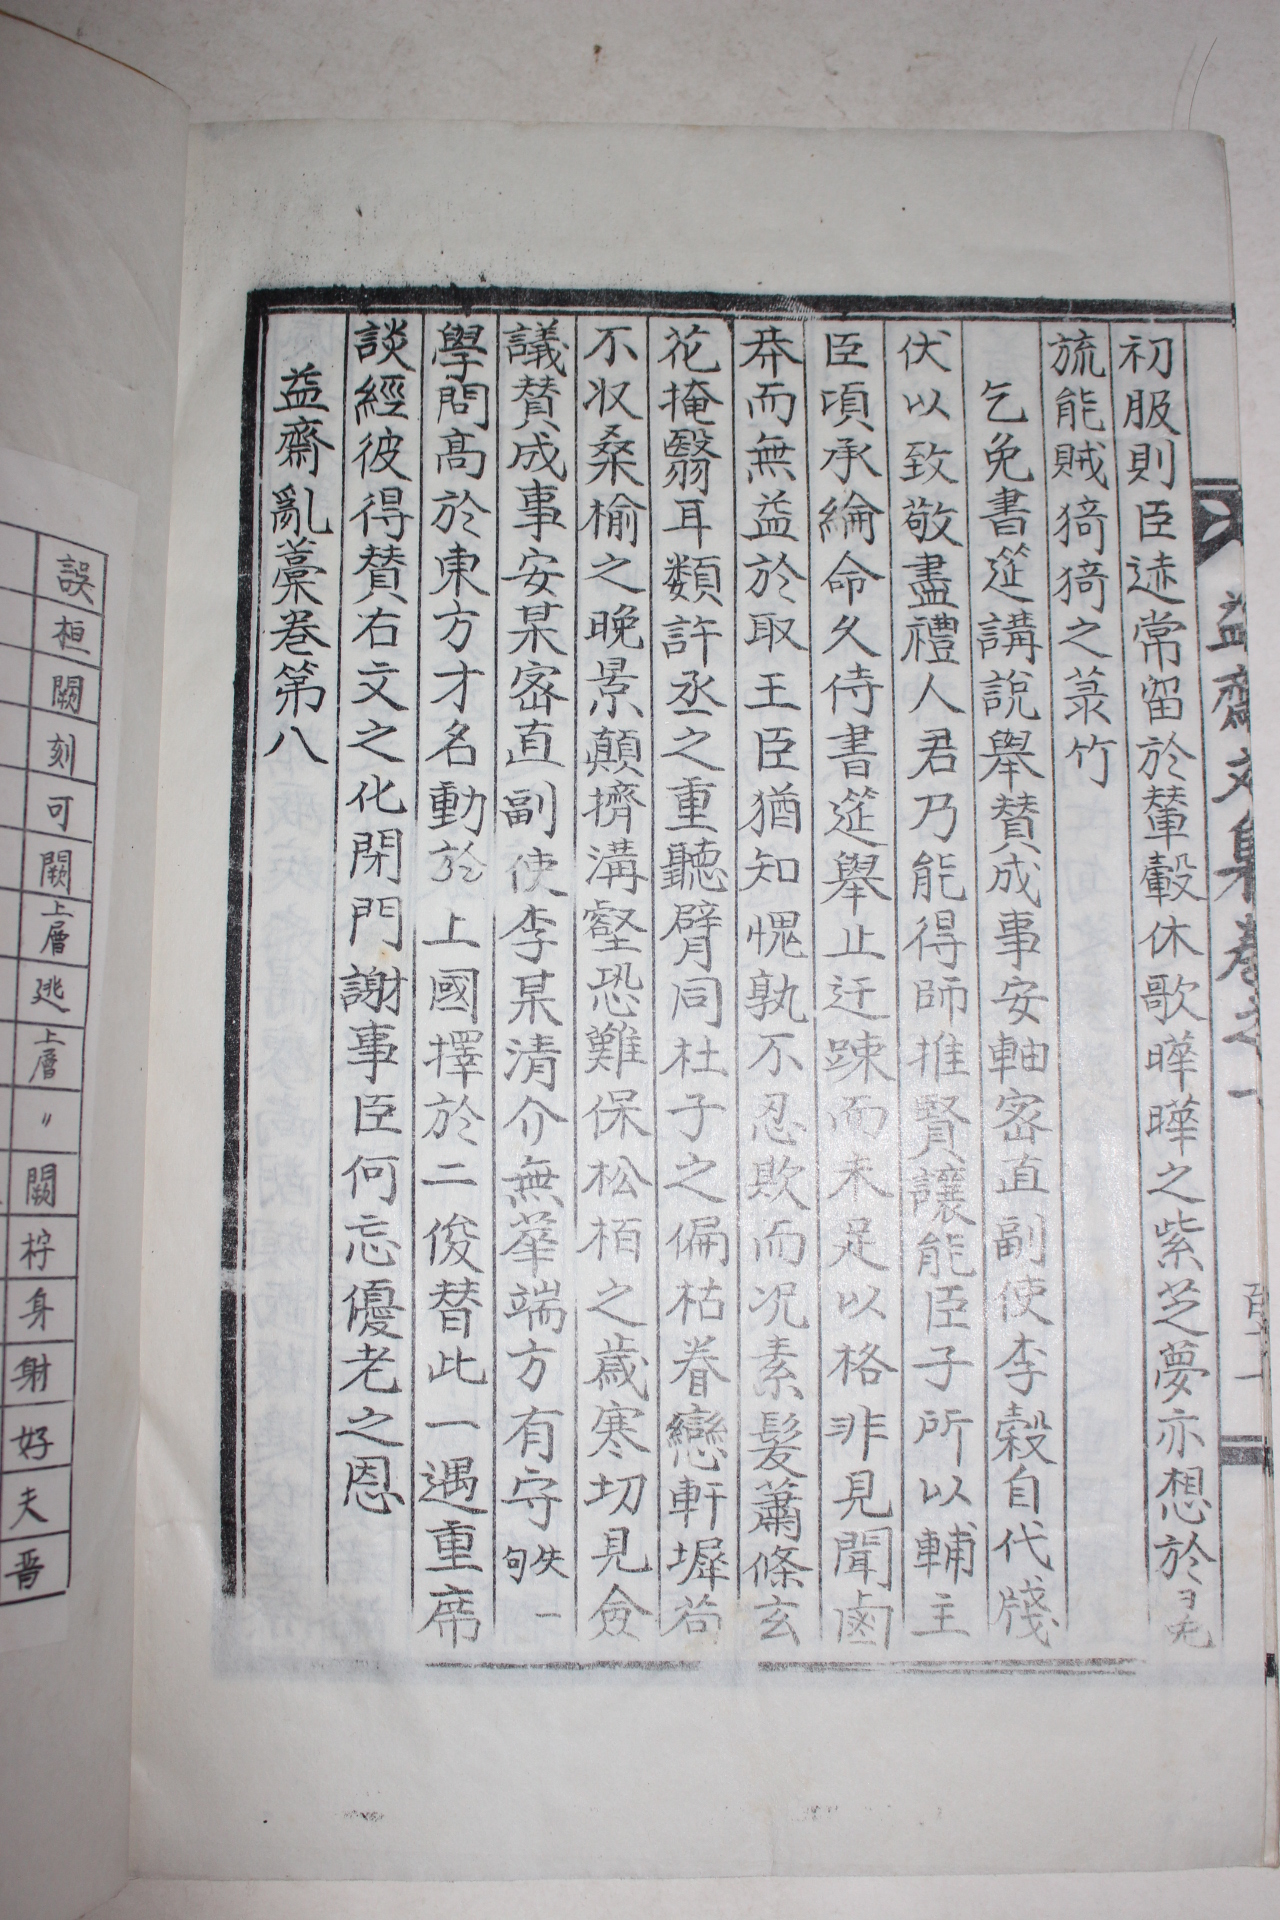 初服則臣迹常留於輦轂休歌曄曄之紫芝夢亦想於
旒能賊猗猗之菉竹
乞免書筵講說擧賛成事安軸密直副使李穀自代牋
伏以致敬盡禮人君乃能得師推賢讓能臣子所以輔主
臣頃承綸命久侍書筵擧止迂踈而未足以格非見聞鹵
莽而無益於取王臣猶知愧孰不忍欺而况素髮蕭條玄
花掩翳耳類許丞之重聽臂同杜子之偏枯眷戀軒墀苟
不收桑楡之晚景顚擠溝壑恐難保松栢之歲寒切見僉
議賛成事安某密直副使李某淸介無華端方有守失一句
學問高於東方才名動於上國擇於二俊替此一遇重席
談經彼得賛右文之化閉門謝事臣何忘優老之恩
益齋亂藁卷第八
益齋文集卷之
誤
桓
闕
刻
可
闕
上層
逃
上層
〃
闕
柠
身
射
好
夫
晋